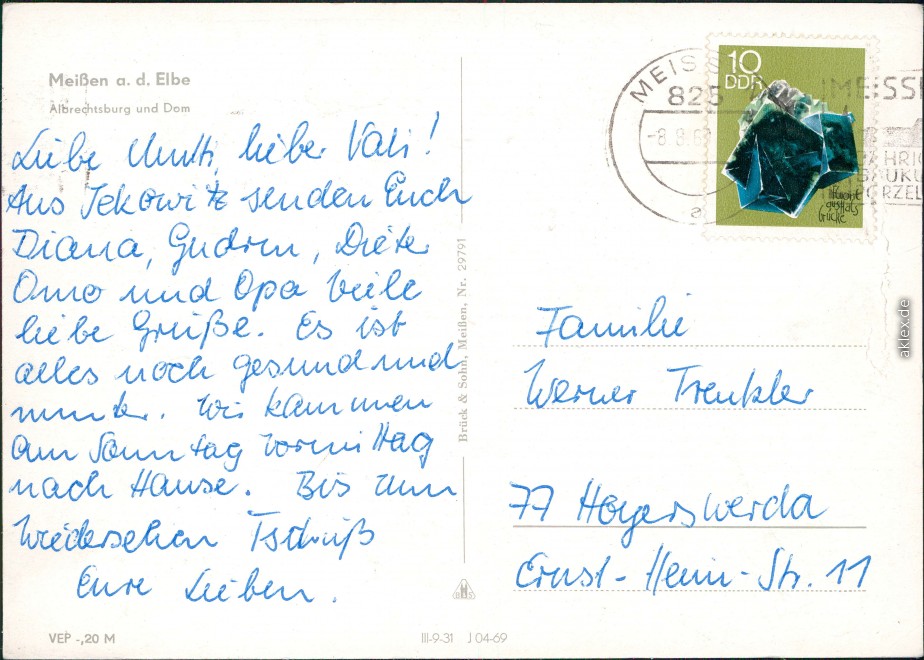 Meißen a. d. Elbe
Albrechtsburg und Dom
Liebe Mutti, lieber Vati!
Aus Jekowitz senden Euch
Diana, Gudrun, Dieter
Omo und Opa viele
liebe Grüße. Es ist
alles noch gesund und
munter. Wir kammen
am Sonntag vormittag
nach Hause. Bis zum
Wiedersehen Tschüß
Eure Lieben.
VEP -,20 M
III-9-31 J 04-69
Brück & Sohn, Meißen, Nr. 29791
MEISS
825
-8.9.6
a
10
DDR
Fluorit
aus Halsbrücke
MEISSE
JÄHRIG
BAUKU
PORZEL
Familie
Werner Trenkler
77 Hoyerswerda
Ernst-Heim-Str. 11
aklex.de